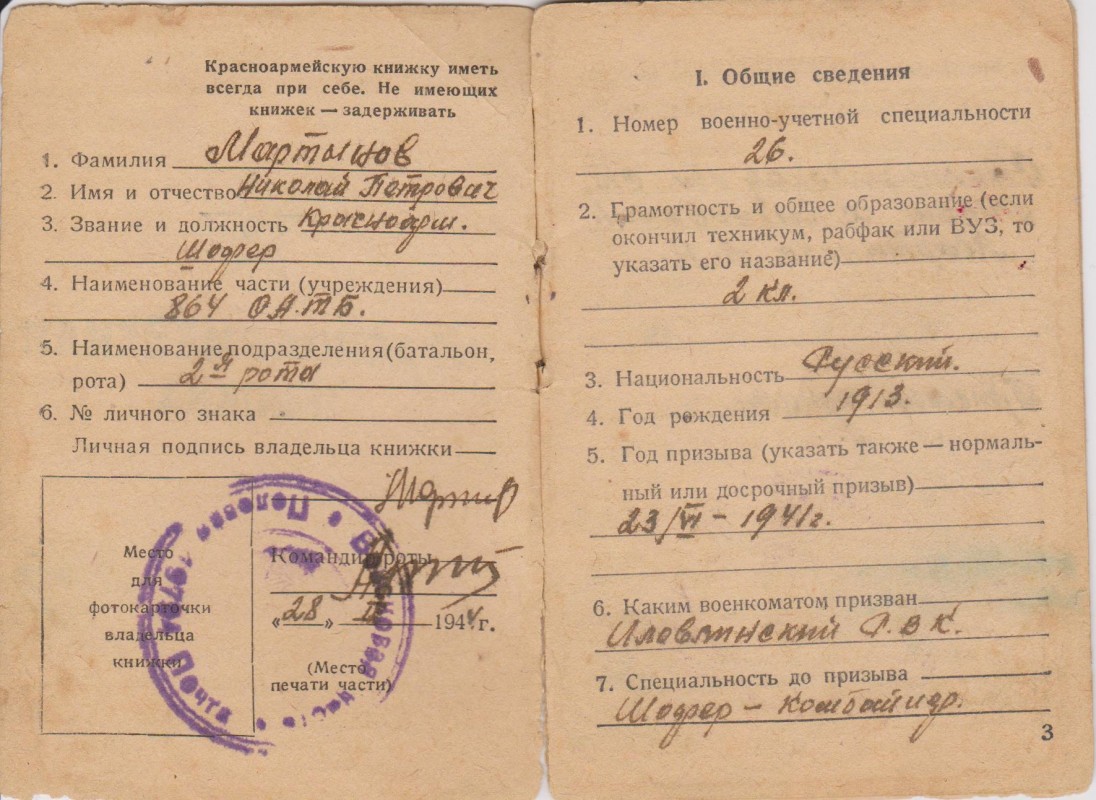 Красноармейскую книжку иметь
всегда при себе. Не имеющих
книжек — задерживать
1. Фамилия Мартынов
2. Имя и отчество Николай Петрович
3. Звание и должность Красноарм.
Шофер
4. Наименование части (учреждения)
864 О.А.Т.Б.
5. Наименование подразделения (батальон,
рота) 2я рота
6. № личного знака
Личная подпись владельца книжки
Место
для
фотокарточки
владельца
книжки
Командир роты
«28» 1944 г.
(Место
печати части)
Полевая Почта
I. Общие сведения
1. Номер военно-учетной специальности
26.
2. Грамотность и общее образование (если
окончил техникум, рабфак или ВУЗ, то
указать его название)
2 кл.
3. Национальность Русский.
4. Год рождения 1913.
5. Год призыва (указать также — нормаль-
ный или досрочный призыв)
23/VI – 1941 г.
6. Каким военкоматом призван
Иловлинский Р.В.К.
7. Специальность до призыва
Шофер – Комбайнер.
3